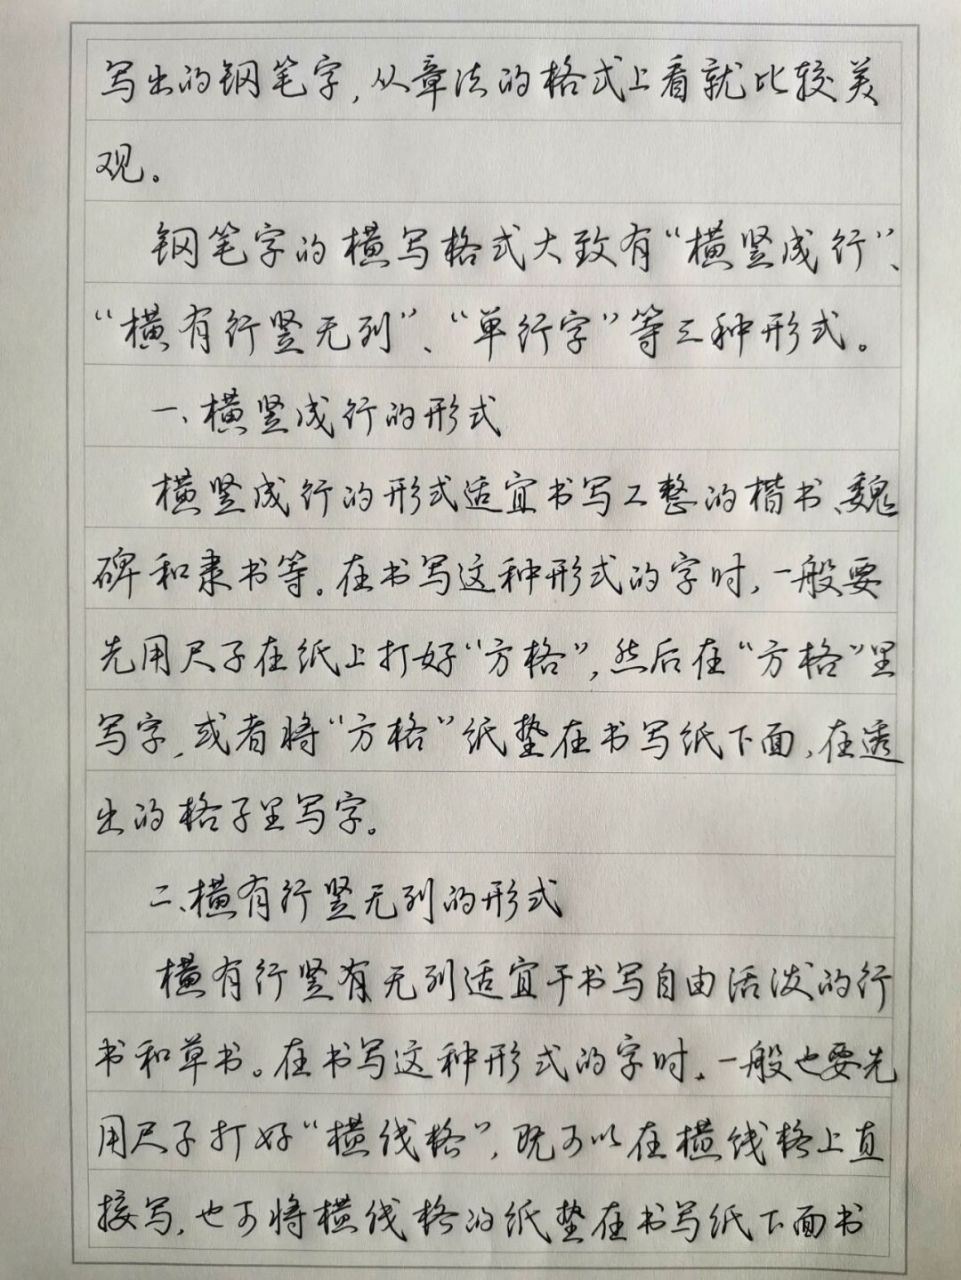 写出的钢笔字,从章法的格式上看就比较美
观。
钢笔字的横写格式大致有“横竖成行”、
“横有行竖无列”、“单行字”等三种形式。
一、横竖成行的形式
横竖成行的形式适宜书写工整的楷书、魏
碑和隶书等。在书写这种形式的字时,一般要
先用尺子在纸上打好“方格”,然后在“方格”里
写字,或者将“方格”纸垫在书写纸下面,在透
出的格子里写字。
二、横有行竖无列的形式
横有行竖有无列适宜于书写自由活泼的行
书和草书。在书写这种形式的字时,一般也要先
用尺子打好“横线格”,既可以在横线格上直
接写,也可将横线格的纸垫在书写纸下面书